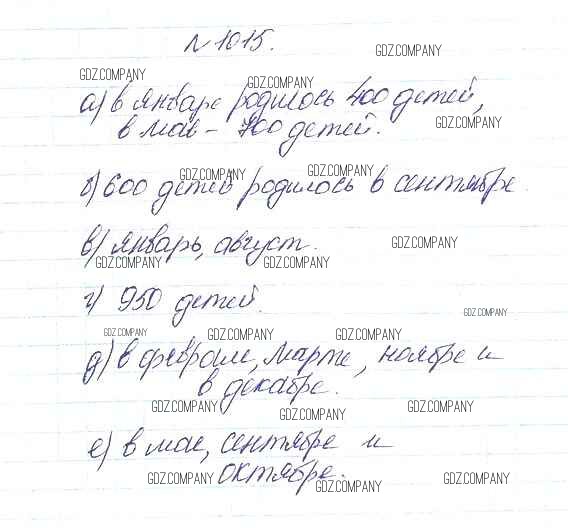 №1015.
GDZ.COMPANY
GDZ.COMPANY
GDZ.COMPANY
а) в январе родилось 400 детей,
GDZ.COMPANY
в мае – 700 детей.
GDZ.COMPANY
GDZ.COMPANY
б) 600 детей родилось в сентябре.
GDZ.COMPANY
в) январь, август.
GDZ.COMPANY
GDZ.COMPANY
г) 950 детей.
GDZ.COMPANY
GDZ.COMPANY
GDZ.COMPANY
GDZ.COMPANY
д) в феврале, марте, ноябре и
в декабре.
GDZ.COMPANY
GDZ.COMPANY
GDZ.COMPANY
е) в мае, сентябре и
октябре.
GDZ.COMPANY
GDZ.COMPANY
GDZ.COMPANY